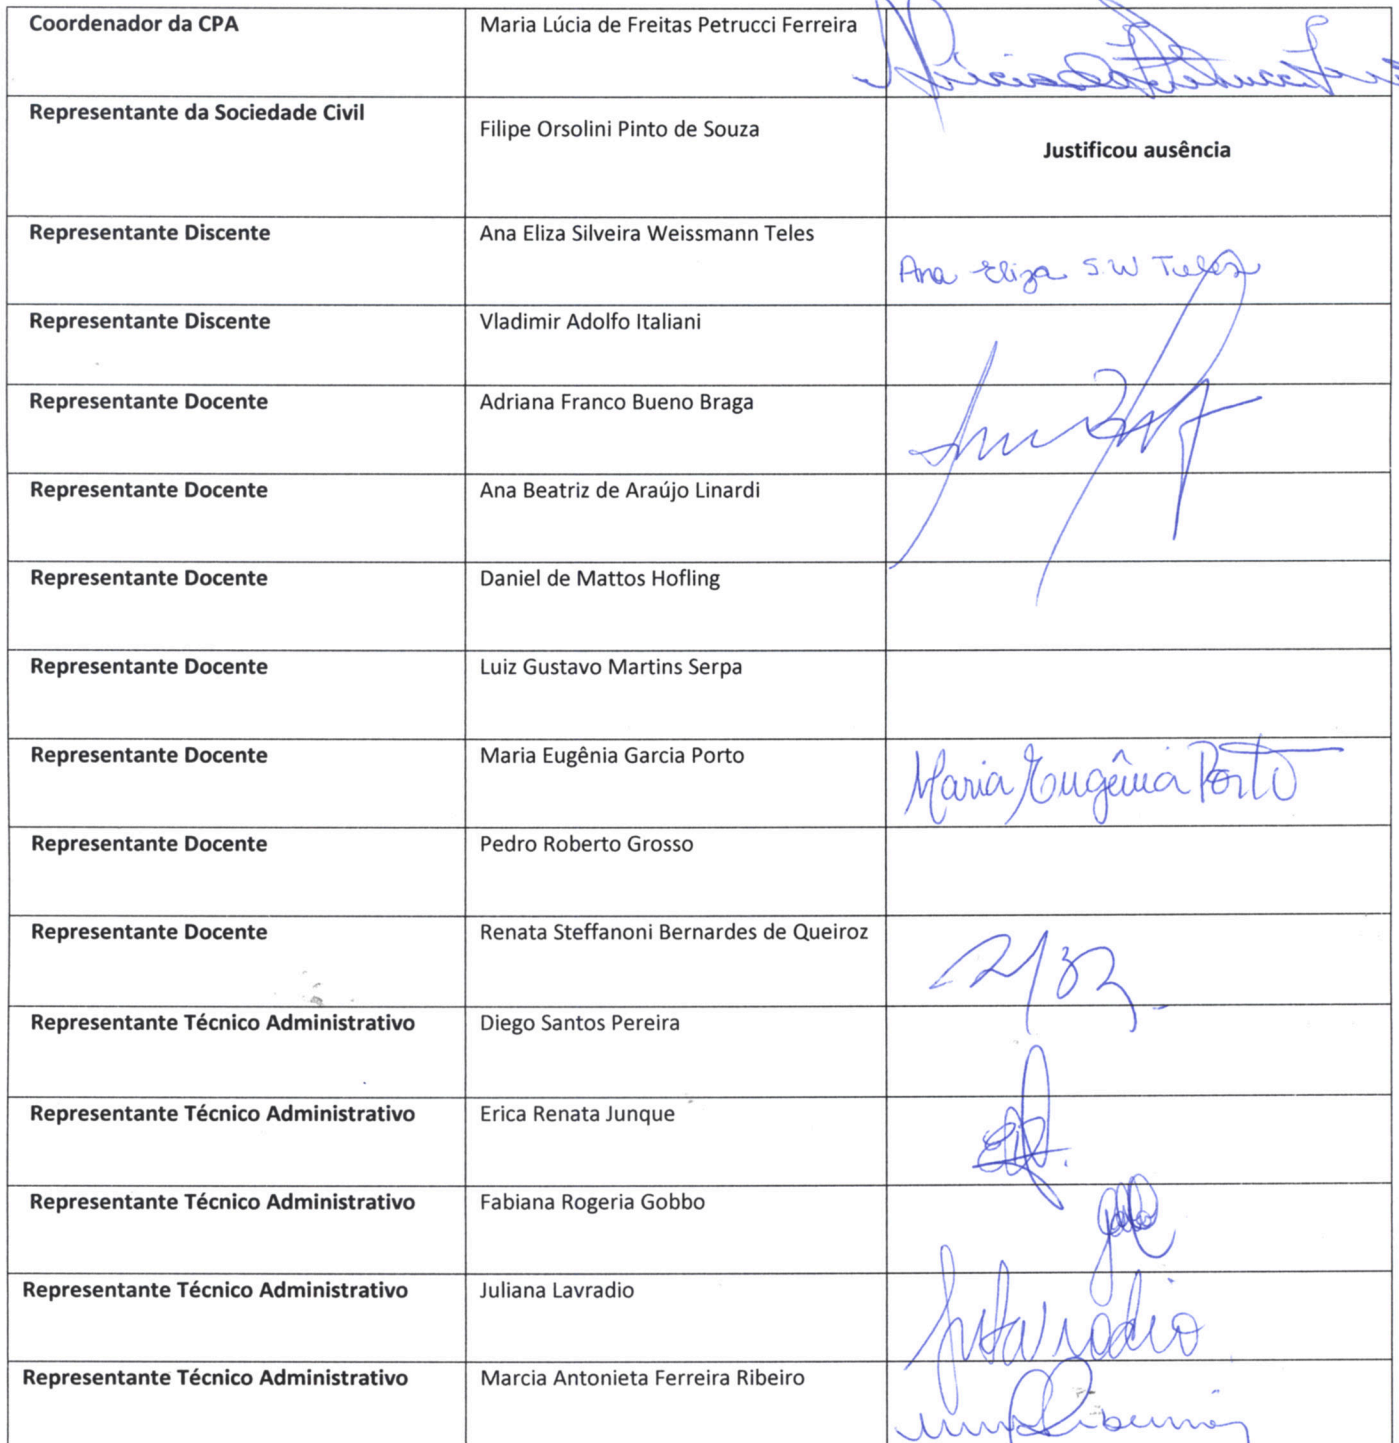 Coordenador da CPA Maria Lúcia de Freitas Petrucci Ferreira
Representante da Sociedade Civil Filipe Orsolini Pinto de Souza Justificou ausência
Representante Discente Ana Eliza Silveira Weissmann Teles Ana Eliza S.W Teles
Representante Discente Vladimir Adolfo Italiani
Representante Docente Adriana Franco Bueno Braga
Representante Docente Ana Beatriz de Araújo Linardi
Representante Docente Daniel de Mattos Hofling
Representante Docente Luiz Gustavo Martins Serpa
Representante Docente Maria Eugênia Garcia Porto Maria Eugênia Porto
Representante Docente Pedro Roberto Grosso
Representante Docente Renata Steffanoni Bernardes de Queiroz
Representante Técnico Administrativo Diego Santos Pereira
Representante Técnico Administrativo Erica Renata Junque
Representante Técnico Administrativo Fabiana Rogeria Gobbo
Representante Técnico Administrativo Juliana Lavradio
Representante Técnico Administrativo Marcia Antonieta Ferreira Ribeiro